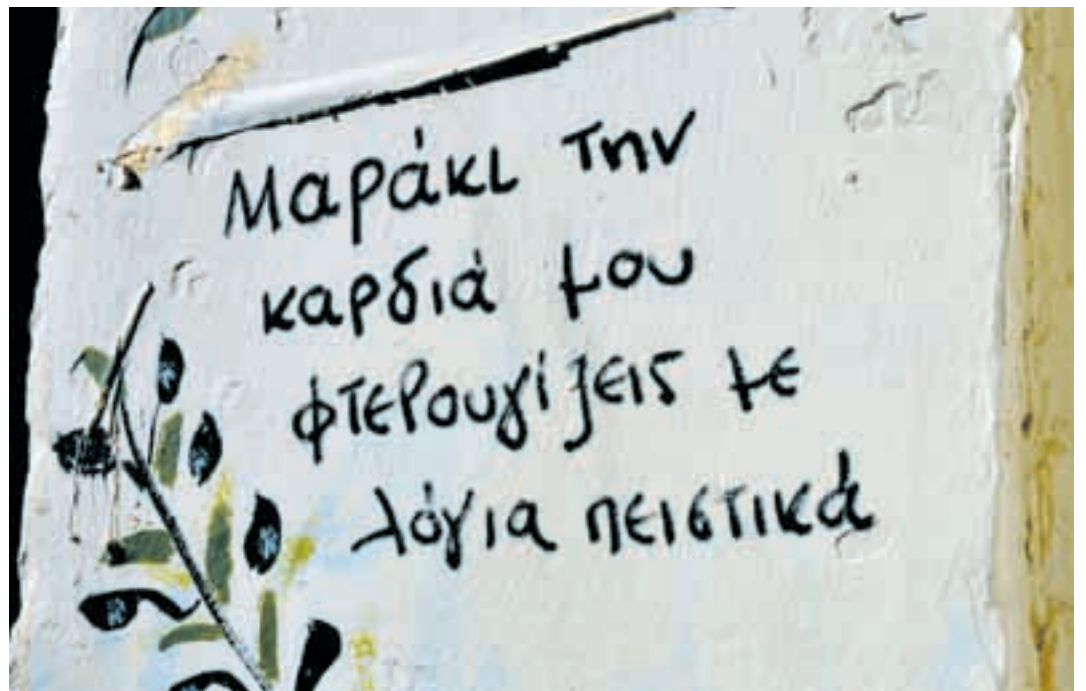 Μαράκι την
καρδιά μου
φτερουγίζεις με
λόγια πειστικά